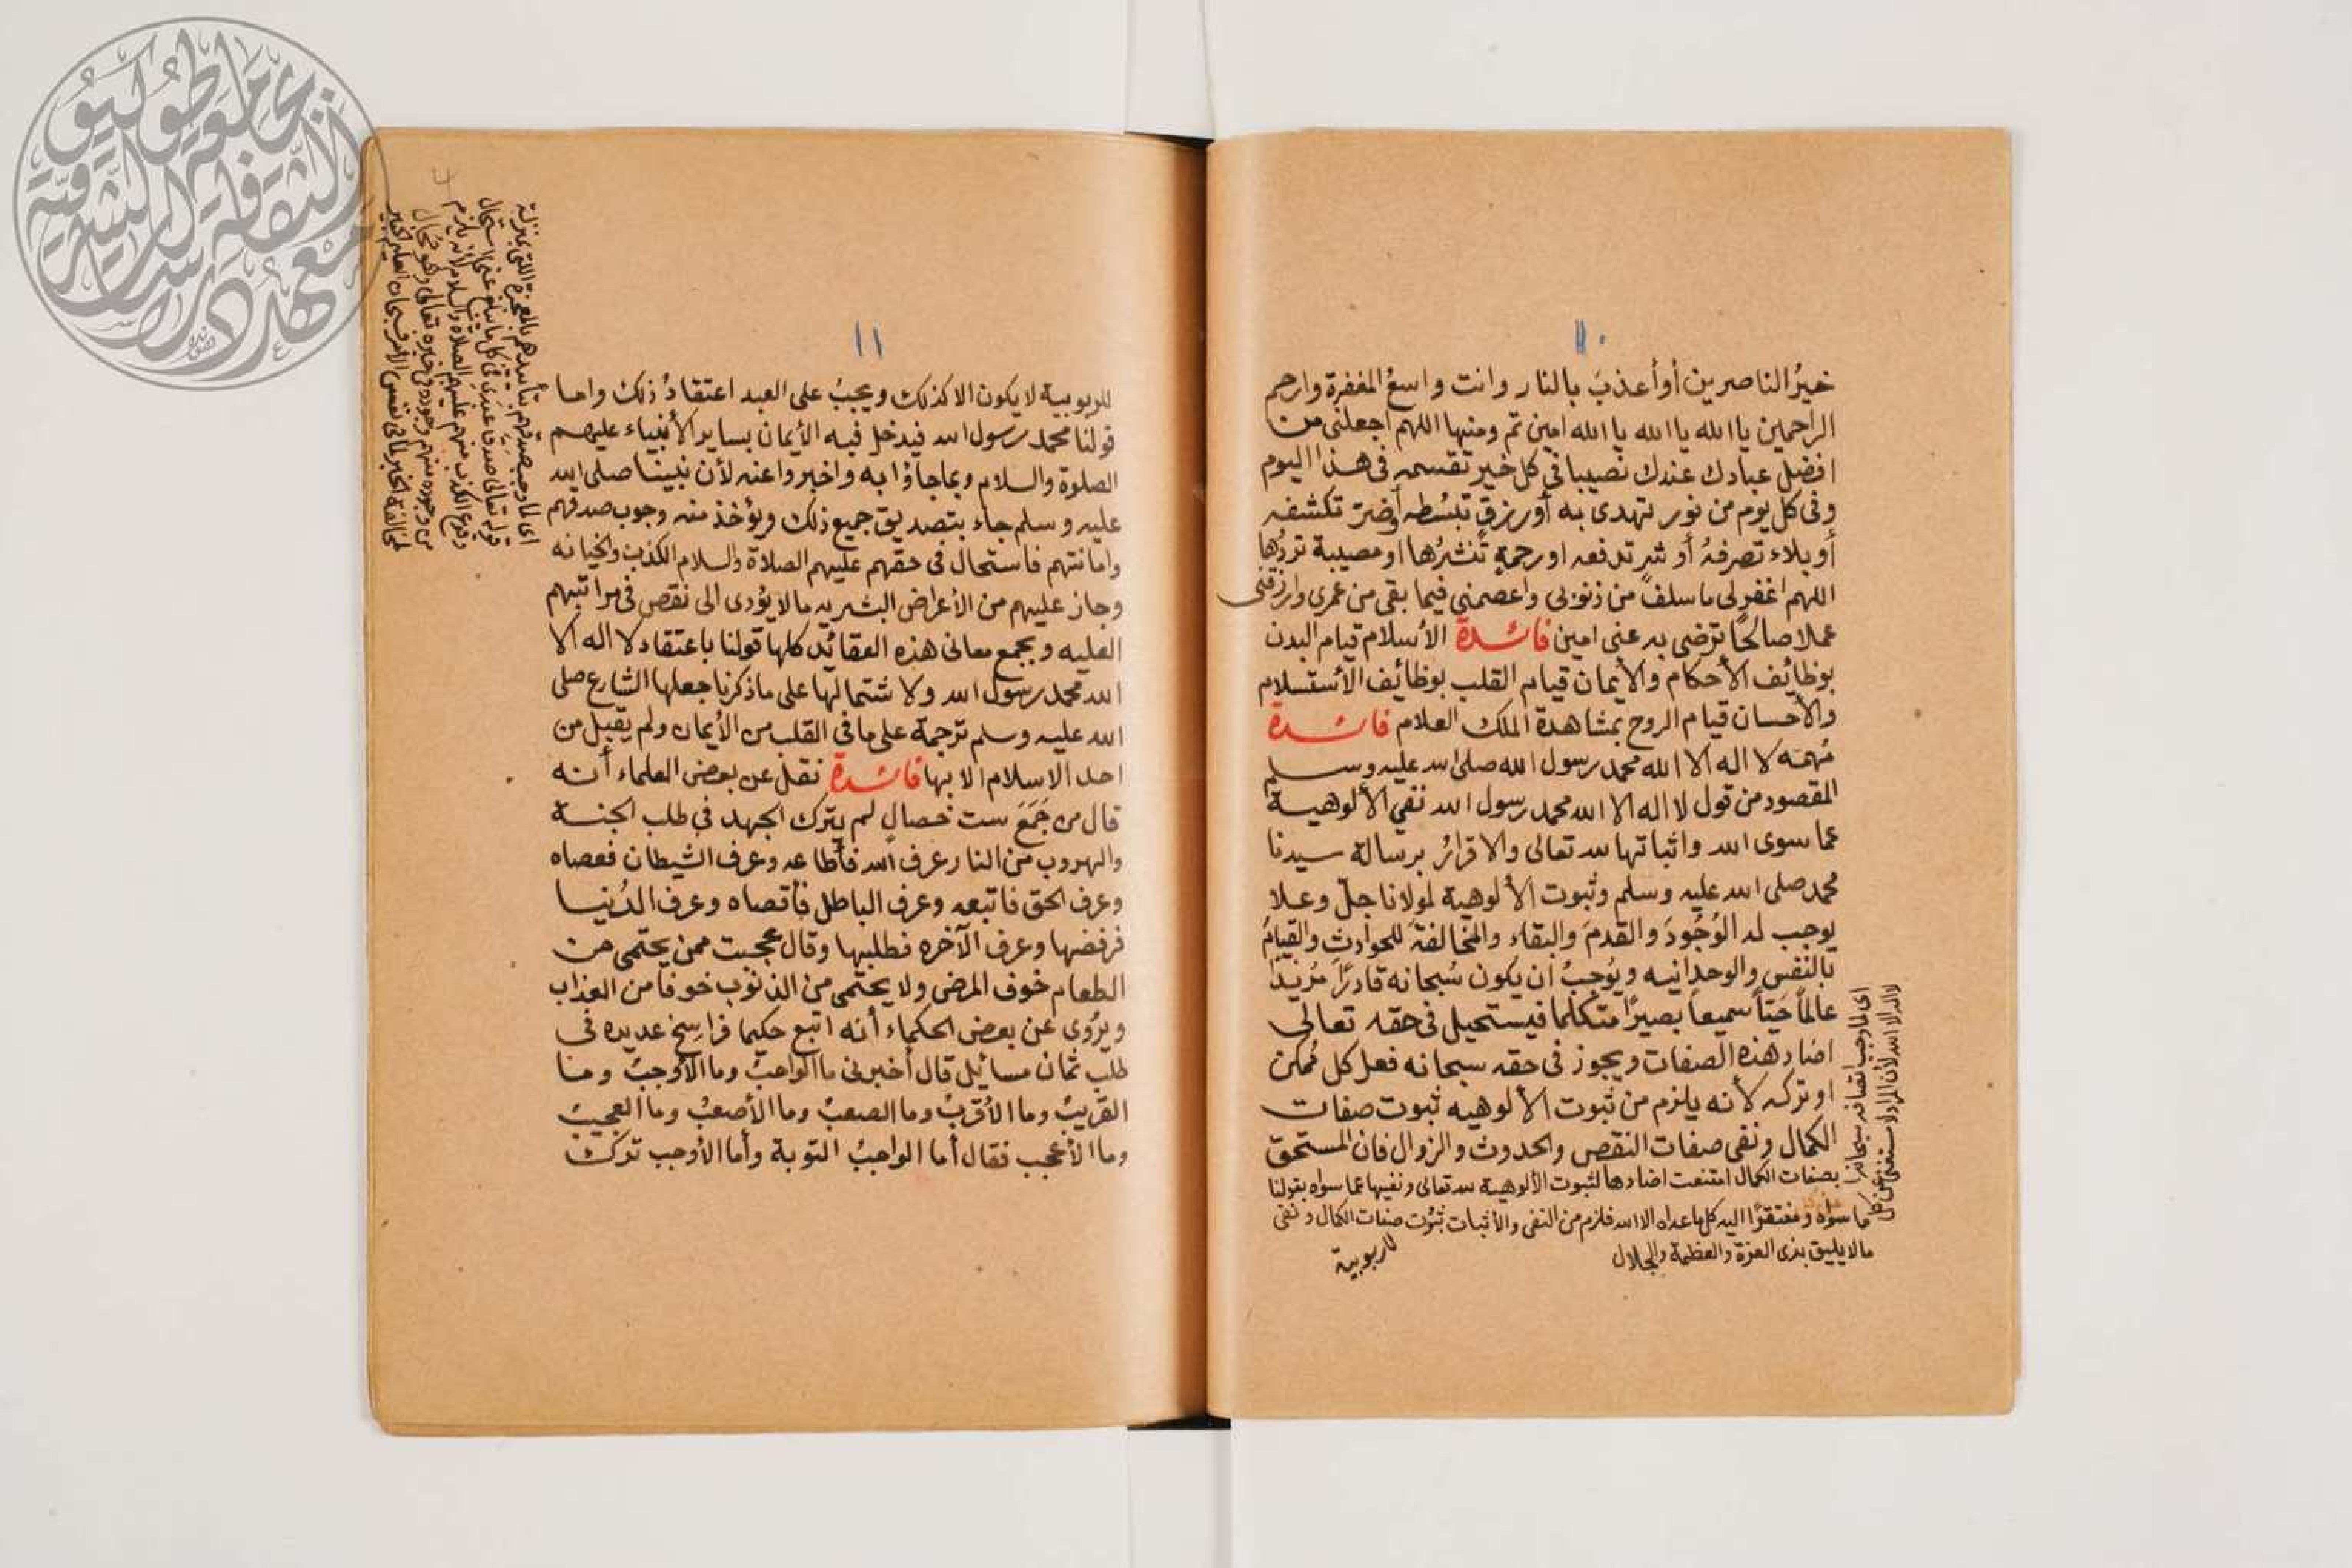 ١٠
خيرُ الناصرين أو أعذبَ بالنار وانت واسعُ المغفرة وارحم
الراحمين يا الله يا الله يا الله امين تم ومنها اللهم اجعلني من
افضل عبادك عندك نصيبا في كل خير تقسمه في هذا اليوم
وفى كل يوم من نور تهدى به أو رزقٍ تبْسُطه أو ضرّ تكشفه
أو بلاء تصرفهُ أو شر تدفعه او رحمةٍ تنْشرُها او مصيبة تردُها
اللهم اغفر لى ما سلفَ من ذنوبى واعصمني فيما بقى من عمرى وارزقنى
عملا صالحًا ترضى به عنى امين فائدة الأسلام قيام البدن
بوظائف الأحكام والأيمان قيام القلب بوظائف الأستسلام
والأحسان قيام الروح بمشاهدة الملك العلام فائدة
مُهمّه لا اله الا الله محمد رسول الله صلى الله عليه وسلم
المقصود من قول لا اله الا الله محمد رسول الله نفي الألوهية
عما سوى الله واثباتها لله تعالى والاقرارُ برسالة سيدنا
محمد صلى الله عليه وسلم وثبوت الألوهية لمولانا جلّ وعلا
يوجب له الوُجُودَ والقدمَ والبقاء والمخالفةَ للحوادثِ والقيامُ
بالنفس والوحدانيه ويُوجبُ ان يكون سُبحانه قادرًا مُريدًا
عالماً حَيّاً سميعاً بصيرًا متكلما فيستحيل فى حقه تعالى
اضاد هذه الصفات ويجوز فى حقه سبحانه فعل كل مُمكن
او تركه لأنه يلزم من ثبوت الألوهيه ثبوت صفات
الكمال ونفى صفات النقص والحدوث والزوال فان المستحق
بصفات الكمال امتنعت اضادها لثبوت الألوهية لله تعالى ونفيها عما سواه بقولنا
اى لما وجب اتصافه سبحانه
لا اله الا الله لأن المراد لا مستغنى عن كل
ما سواه ومفتقرًا اليه كل ما عداه الا الله فلزم من النفى والأثبات ثبوت صفات الكمال ونفى
مالا يليق بذى العزة والعظمة والجلال
للربوبية
١١
للربوبية لا يكون الا كذلك ويجبُ على العبد اعتقادُ ذلك واما
قولنا محمد رسول الله فيدخل فيه الأيمان بساير الأنبياء عليهم
الصلوة والسلام وبما جاؤا به واخبروا عنه لأن نبينا صلى الله
عليه وسلم جاء بتصديق جميع ذلك ويؤخذ منه وجوب صدقهم
وامانتهم فاستحال فى حقهم عليهم الصلاة والسلام الكذب والخيانه
وجاز عليهم من الأعراض البشريه مالا يؤدى الى نقص فى مراتبهم
العليه ويجمع معانى هذه العقائد كلها قولنا باعتقاد لا اله الا
الله محمد رسول الله ولاشتمالها على ما ذكرنا جعلها الشارع صلى
الله عليه وسلم ترجمة على ما فى القلب من الأيمان ولم يقبل من
احد الاسلام الا بها فائدة نقل عن بعض العلماء أنه
قال من جَمَعَ ست خصالٍ لم يترك الجهد في طلب الجنة
والهروب من النار عرف الله فأطاعه وعرف الشيطان فعصاه
وعرف الحق فاتبعه وعرف الباطل فأقصاه وعرف الدُنيا
فرفضها وعرف الآخره فطلبها وقال عجبت ممن يحتمى من
الطعام خوف المرض ولا يحتمى من الذنوب خوفا من العذاب
ويرُوى عن بعض الحكماء أنه اتبع حكيما فراسخ عديده فى
طلب ثمان مسائل قال أخبرنى ما الواجبُ وما الأوجبُ وما
القريبُ وما الأقربُ وما الصعبُ وما الأصعبُ وما العجيبُ
وما الأعجب فقال أما الواجبُ التوبة وأما الأوجب ترك
اى لما وجب صدقهم بتأييدهم بالمعجزة اللتى بمنزلة
قوله تعالى صدق عبدى فى كل ما يبلغ عنى استحال
وقوع الكذب منهم عليهم الصلاة والسلام لأنه يلزم
من وجوده منهم وجوده فى خبره تعالى وهو محُال
لمخالفة الخبر لما فى نفس الأمر سبحان العليم الخبير
جامعة طوكيو
معهد دراسات الثقافة الشرقية